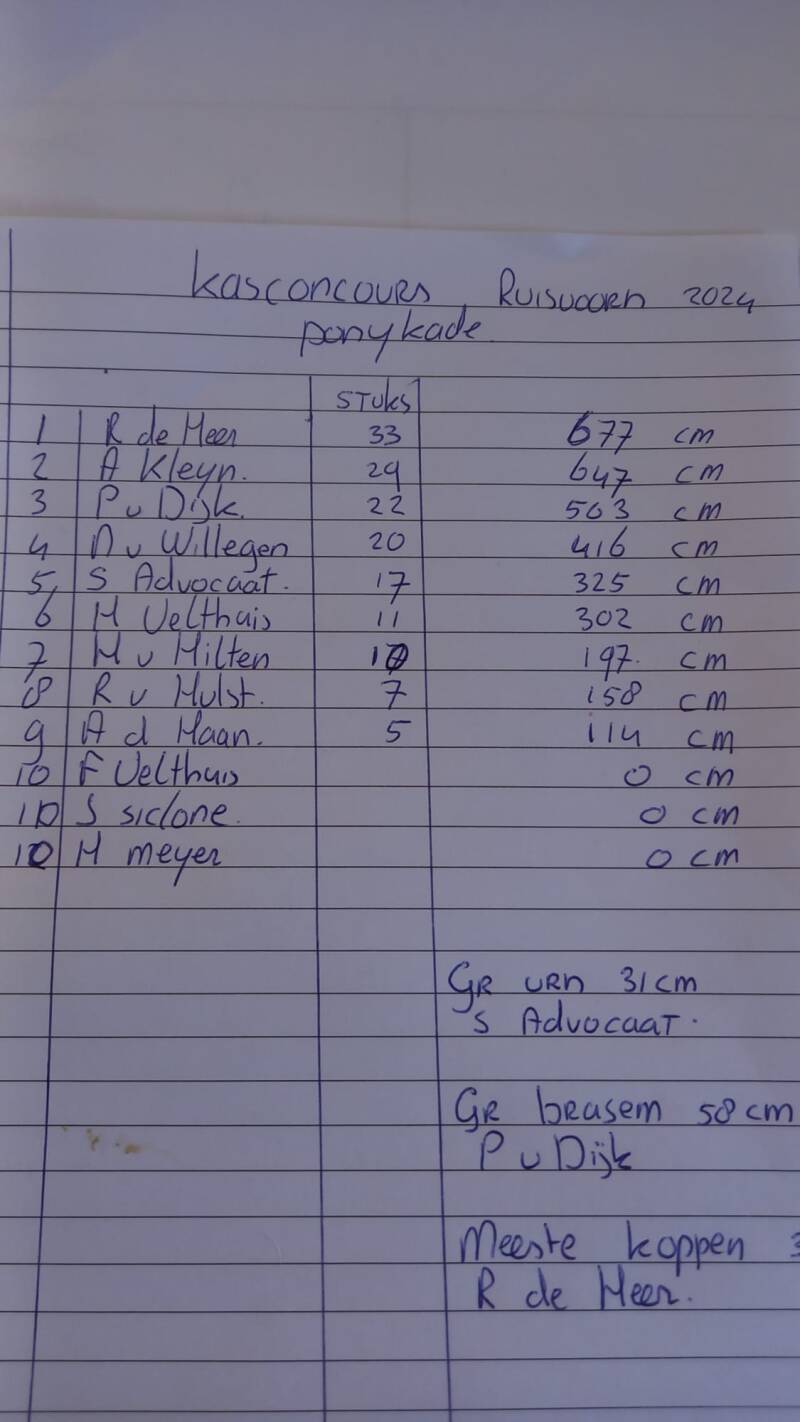 kasconcours Ruisvoorn 2024
ponykade
STUKS
1 R de Heer 33 677 cm
2 A Kleyn. 29 647 cm
3 P v Dijk. 22 503 cm
4 D v Willegen 20 416 cm
5 S Advocaat. 17 325 cm
6 H Velthuis 11 302 cm
7 H v Hilten 10 197 cm
8 R v Hulst. 7 158 cm
9 A d Haan. 5 114 cm
10 F Velthuis 0 cm
10 S siclone. 0 cm
10 H meyer 0 cm
GR VRN 31 cm
S Advocaat.
GR brasem 58 cm
P v Dijk
Meeste koppen
R de Heer.